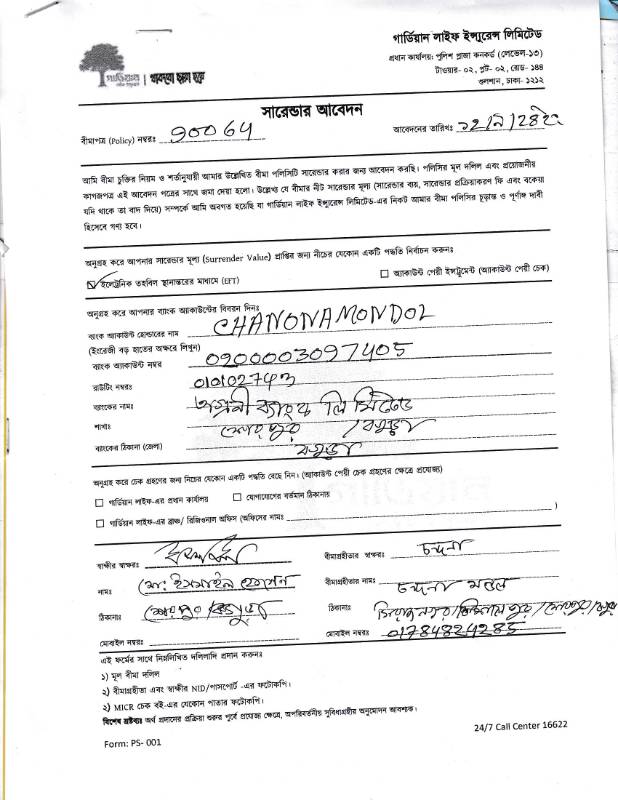 গার্ডিয়ান লাইফ ইন্স্যুরেন্স লিমিটেড
প্রধান কার্যালয়: পুলিশ প্লাজা কনকর্ড (লেভেল-১৩)
টাওয়ার- ০২, প্লট- ০২, রোড- ১৪৪
গুলশান, ঢাকা- ১২১২
গার্ডিয়ান
সারেন্ডার আবেদন
বীমাপত্র (Policy) নম্বরঃ 90064
আবেদনের তারিখঃ
আমি বীমা চুক্তির নিয়ম ও শর্তানুযায়ী আমার উল্লেখিত বীমা পলিসিটি সারেন্ডার করার জন্য আবেদন করছি। পলিসির মূল দলিল এবং প্রয়োজনীয়
কাগজপত্র এই আবেদন পত্রের সাথে জমা দেয়া হলো। উল্লেখ্য যে বীমার নীট সারেন্ডার মূল্য (সারেন্ডার ব্যয়, সারেন্ডার প্রক্রিয়াকরণ ফি এবং বকেয়া
যদি থাকে তা বাদ দিয়ে) সম্পর্কে আমি অবগত হয়েছি যা গার্ডিয়ান লাইফ ইন্স্যুরেন্স লিমিটেড-এর নিকট আমার বীমা পলিসির চূড়ান্ত ও পূর্ণাঙ্গ দাবী
হিসেবে গণ্য হবে।
অনুগ্রহ করে আপনার সারেন্ডার মূল্য (Surrender Value) প্রাপ্তির জন্য নীচের যেকোন একটি পদ্ধতি নির্বাচন করুনঃ
ইলেক্ট্রনিক তহবিল স্থানান্তরের মাধ্যমে (EFT)
অ্যাকাউন্ট পেয়ী ইন্সট্রুমেন্ট (অ্যাকাউন্ট পেয়ী চেক)
অনুগ্রহ করে আপনার ব্যাংক অ্যাকাউন্টের বিবরন দিনঃ
ব্যাংক অ্যাকাউন্ট হোল্ডারের নাম CHANONA MONDOL
(ইংরেজী বড় হাতের অক্ষরে লিখুন)
ব্যাংক অ্যাকাউন্ট নম্বর 0200003097405
রাউটিং নম্বরঃ 010102743
ব্যাংকের নামঃ অগ্রনী ব্যাংক লিমিটেড
শাখাঃ শেরপুর / বগুড়া
ব্যাংকের ঠিকানা (জেলা) বগুড়া
অনুগ্রহ করে চেক গ্রহণের জন্য নিচের যেকোন একটি পদ্ধতি বেছে নিন। (অ্যাকাউন্ট পেয়ী চেক গ্রহণের ক্ষেত্রে প্রযোজ্য)
গার্ডিয়ান লাইফ-এর প্রধান কার্যালয়
যোগাযোগের বর্তমান ঠিকানায়
গার্ডিয়ান লাইফ-এর ব্রাঞ্চ/ রিজিওনাল অফিস (অফিসের নামঃ )
স্বাক্ষীর স্বাক্ষরঃ
বীমাগ্রহীতার স্বাক্ষরঃ চন্দনা
নামঃ মো: ইসমাইল হোসেন
বীমাগ্রহীতার নামঃ চন্দনা মন্ডল
ঠিকানাঃ শেরপুর বগুড়া
ঠিকানাঃ
মোবাইল নম্বরঃ
মোবাইল নম্বরঃ 01784824285
এই ফর্মের সাথে নিম্নলিখিত দলিলাদি প্রদান করুনঃ
১) মূল বীমা দলিল
২) বীমাগ্রহীতা এবং স্বাক্ষীর NID/পাসপোর্ট -এর ফটোকপি।
২) MICR চেক বই-এর যেকোন পাতার ফটোকপি।
বিশেষ দ্রষ্টব্যঃ অর্থ প্রদানের প্রক্রিয়া শুরুর পূর্বে প্রযোজ্য ক্ষেত্রে, অপরিবর্তনীয় সুবিধাগ্রহীর অনুমোদন আবশ্যক।
24/7 Call Center 16622
Form: PS- 001